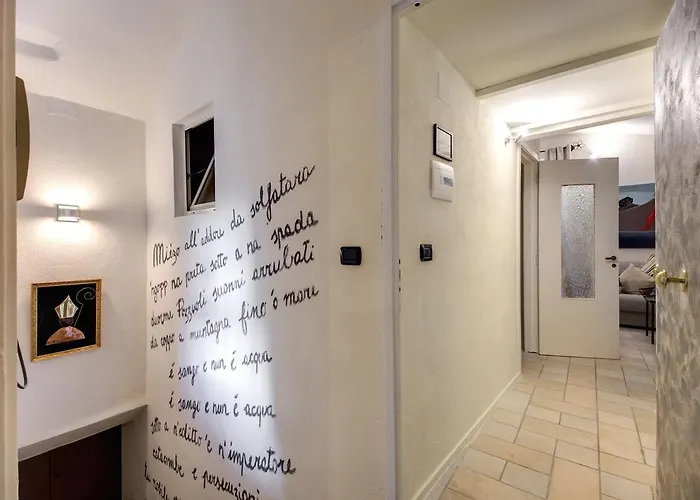 Miézo all'addore da solfatara
'ngopp na preta sotto a na spada
dorme Pozzuoli suonni arrubati
da coppo a muntagna fino 'o mare
é sango e nun é acqua
é sango e nun é acqua
sotto a n'editto 'e n'imperatore
catacombe e persecuzioni